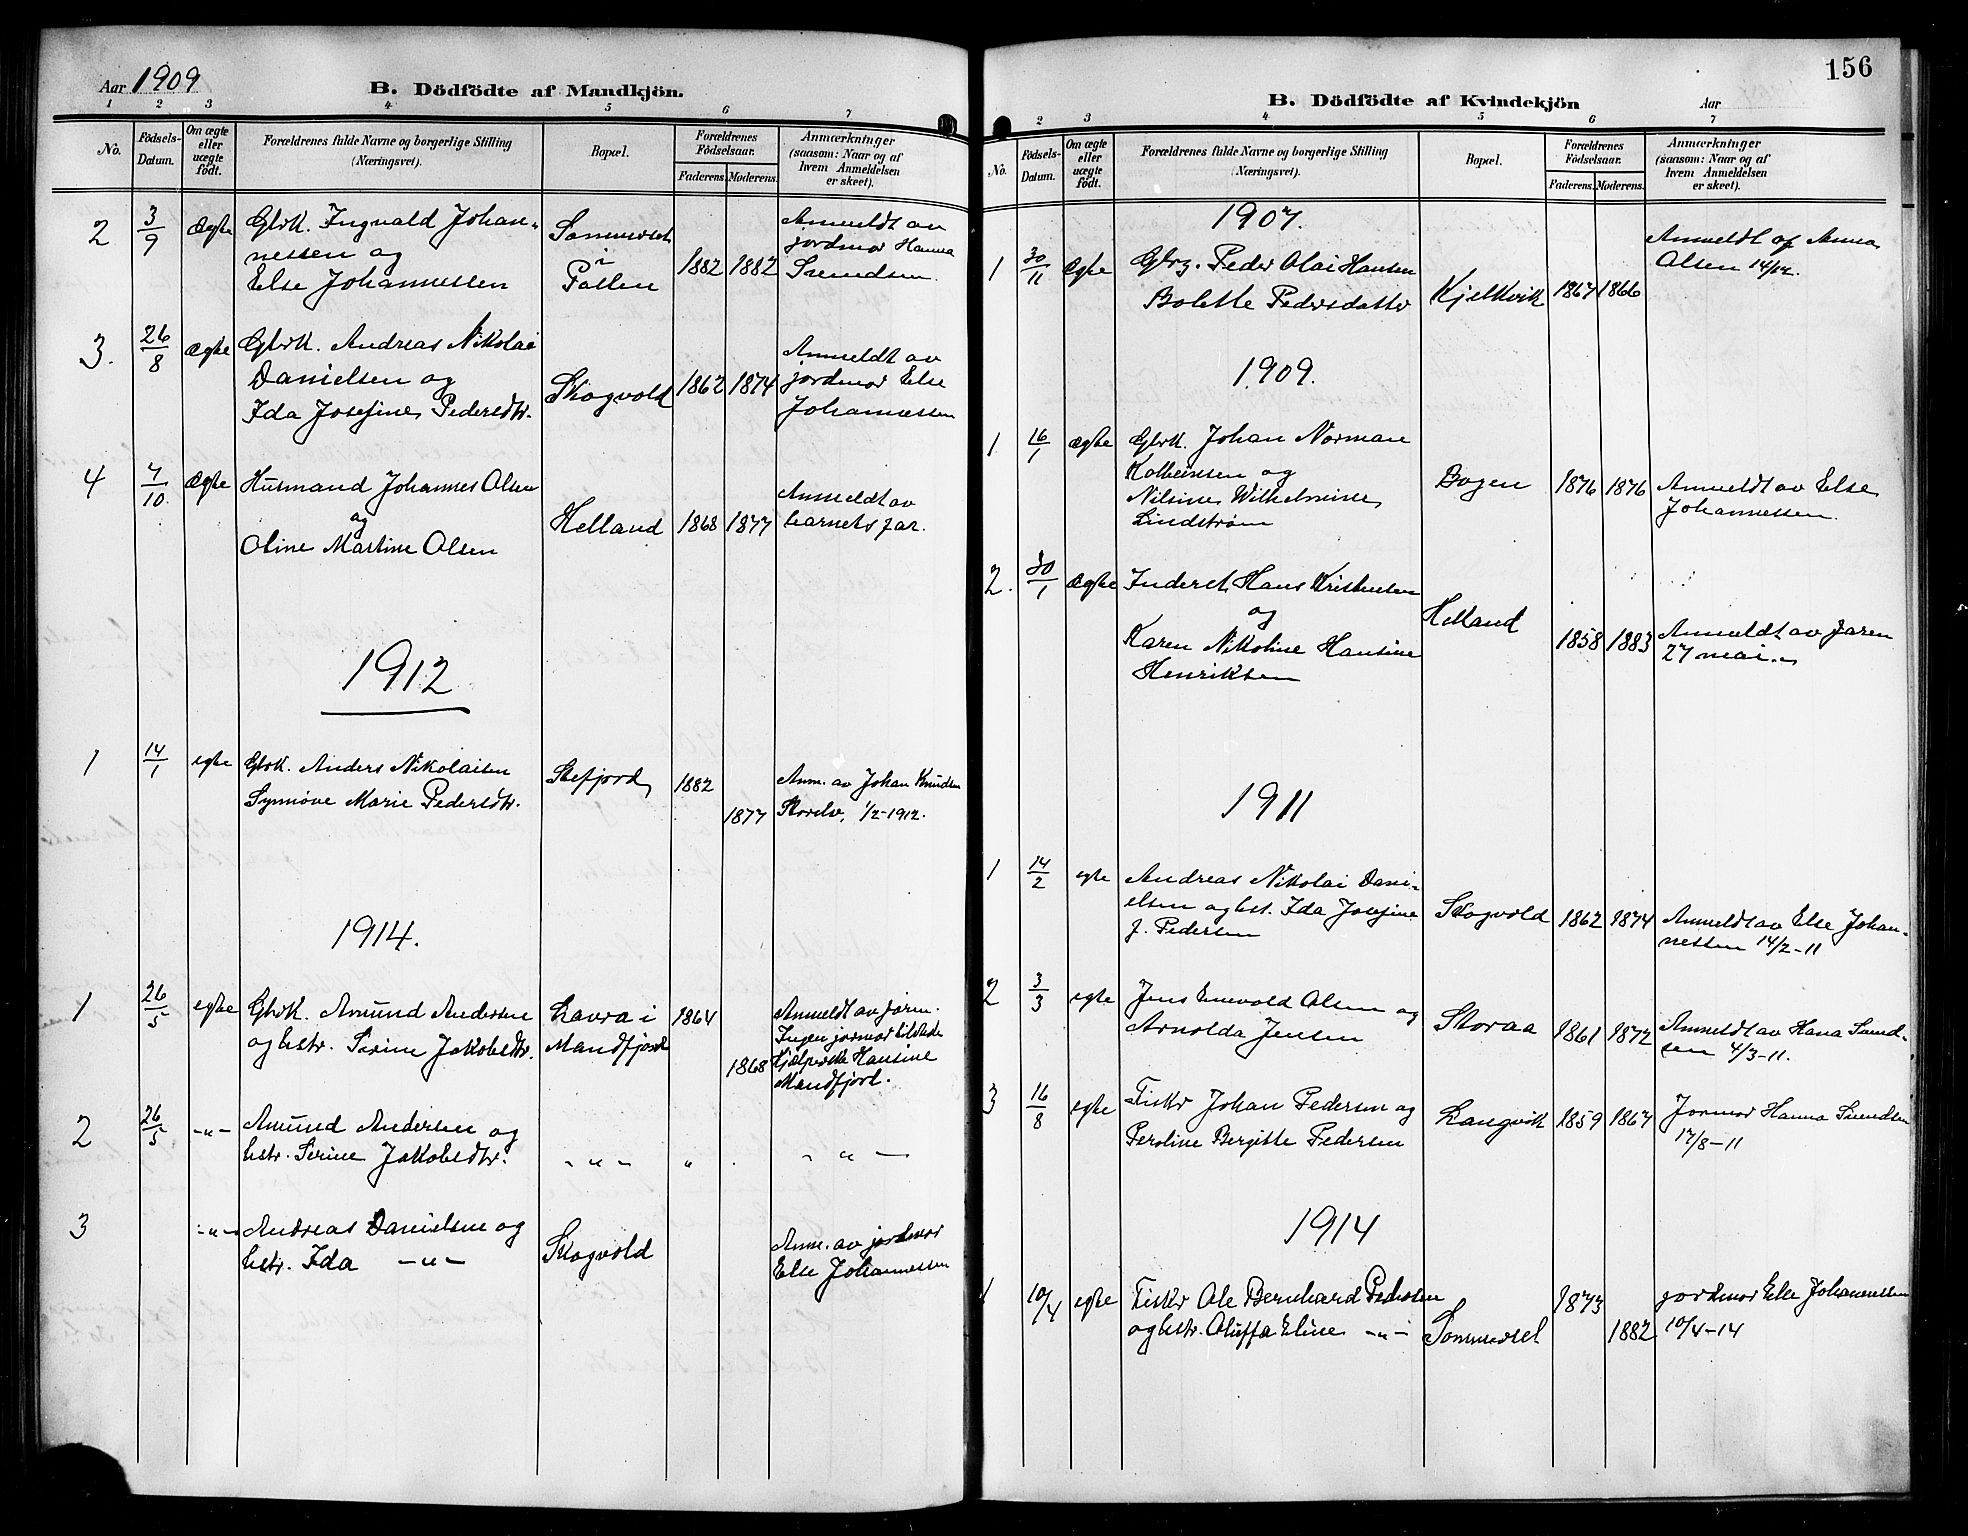 Aar 1909
B. Dödfödte af Mandkjön.
1 2 3 4 5 6 7
No.
Födsels-Datum.
Om ægte eller uægte födt.
Forældrenes fulde Navne og borgerlige Stilling (Næringsvei).
Bopæl.
Forældrenes Födselsaar.
Faderens. Moderens.
Anmærkninger (saasom: Naar og af hvem Anmeldelsen er skeet).
2 3/9 Ægte Gbrk. Ingvald Johan-
nessen og
Else Johannessen
Sommerset
i
Pollen
1882 1882
Anmeldt av
jordmor Hanna
Svendsen.
3. 26/8 ægte Gbrk. Andreas Nikolai
Danielsen og
Ida Josefine Pedersdtr.
Skogvold 1862 1874
Anmeldt av
jordmor Else
Johannessen
4 7/10. Ægte Husmand Johannes Olsen
og
Oline Martine Olsen
Helland 1868 1877
Anmeldt av
barnets far.
1912
1 14/1 egte Gbrk. Anders Nikolaisen
Synnöve Marie Pedersdtr.
Stefjord 1882
1877
Anm. av Johan Knudsen
Storelv, 1/2-1912.
1914.
1 26/5 egte Gbrk. Amund Andersen
og hstr. Serine Jakobsdtr.
Lavra i
Mandfjord
1864
1868
Anmeldt av faren.
Ingen jormor tilstede
Hansine
Mandfjord.
2 26/5 -"- Amund Andersen og
hstr. Serine Jakobsdtr.
-"- " . -"-
3 -"- Andreas Danielsen og
hstr. Ida -"-
Skogvold
Anm. av jordmor
Else Johannessen
156
B. Dödfödte af Kvindekjön
Aar
2 3 4 5 6 7
No.
Födsels-Datum.
Om ægte eller uægte födt.
Forældrenes fulde Navne og borgerlige Stilling (Næringsvei).
Bopæl.
Forældrenes Födselsaar.
Faderens. Moderens.
Anmærkninger (saasom: Naar og af hvem Anmeldelsen er skeet).
1907.
1 30/11 Ægte Gbrg. Peder Olai Hansen
Bolette Pedersdatter
Kjelkvik 1867 1866
Anmeldt af Anna
Olsen 14/12.
1909.
1 16/1 ægte Gbrk. Johan Norman
Kolbeinsen og
Nilsine Wilhelmine
Lindstrøm
Bogen 1876 1876
Anmeldt av Else
Johannessen.
2. 30/1 Ægte Inderst Hans Kristensen
og
Karen Nikoline Hansine
Henriksen
Helland
1858 1883
Anmeldt av faren
27 mai.
1911
1 14/2 egte Andreas Nikolai Dani-
elsen og hst. Ida Josefine
f. Pedersen
Skogvold 1862 1874
Anmeldt av Else Johan-
nessen 14/2-11
2 3/3 egte Jens Enevold Olsen og
Arnolda Jensen
Storaa 1861 1872
Anmeldt av Hana Svend-
sen 4/3-11.
3 16/8 egte Fiskr Johan Pedersen og
Peroline Bergitte Pedersen
Langvik 1859 1867
Jormor Hanna Svendsen
17/8-11
1914
1 10/4 egte Fiskr Ole Bernhard Pedersen
og hstr. Oluffa Eline -"-
Sommersel
1873
1882
jordmor Else Johannessen
10/4-14